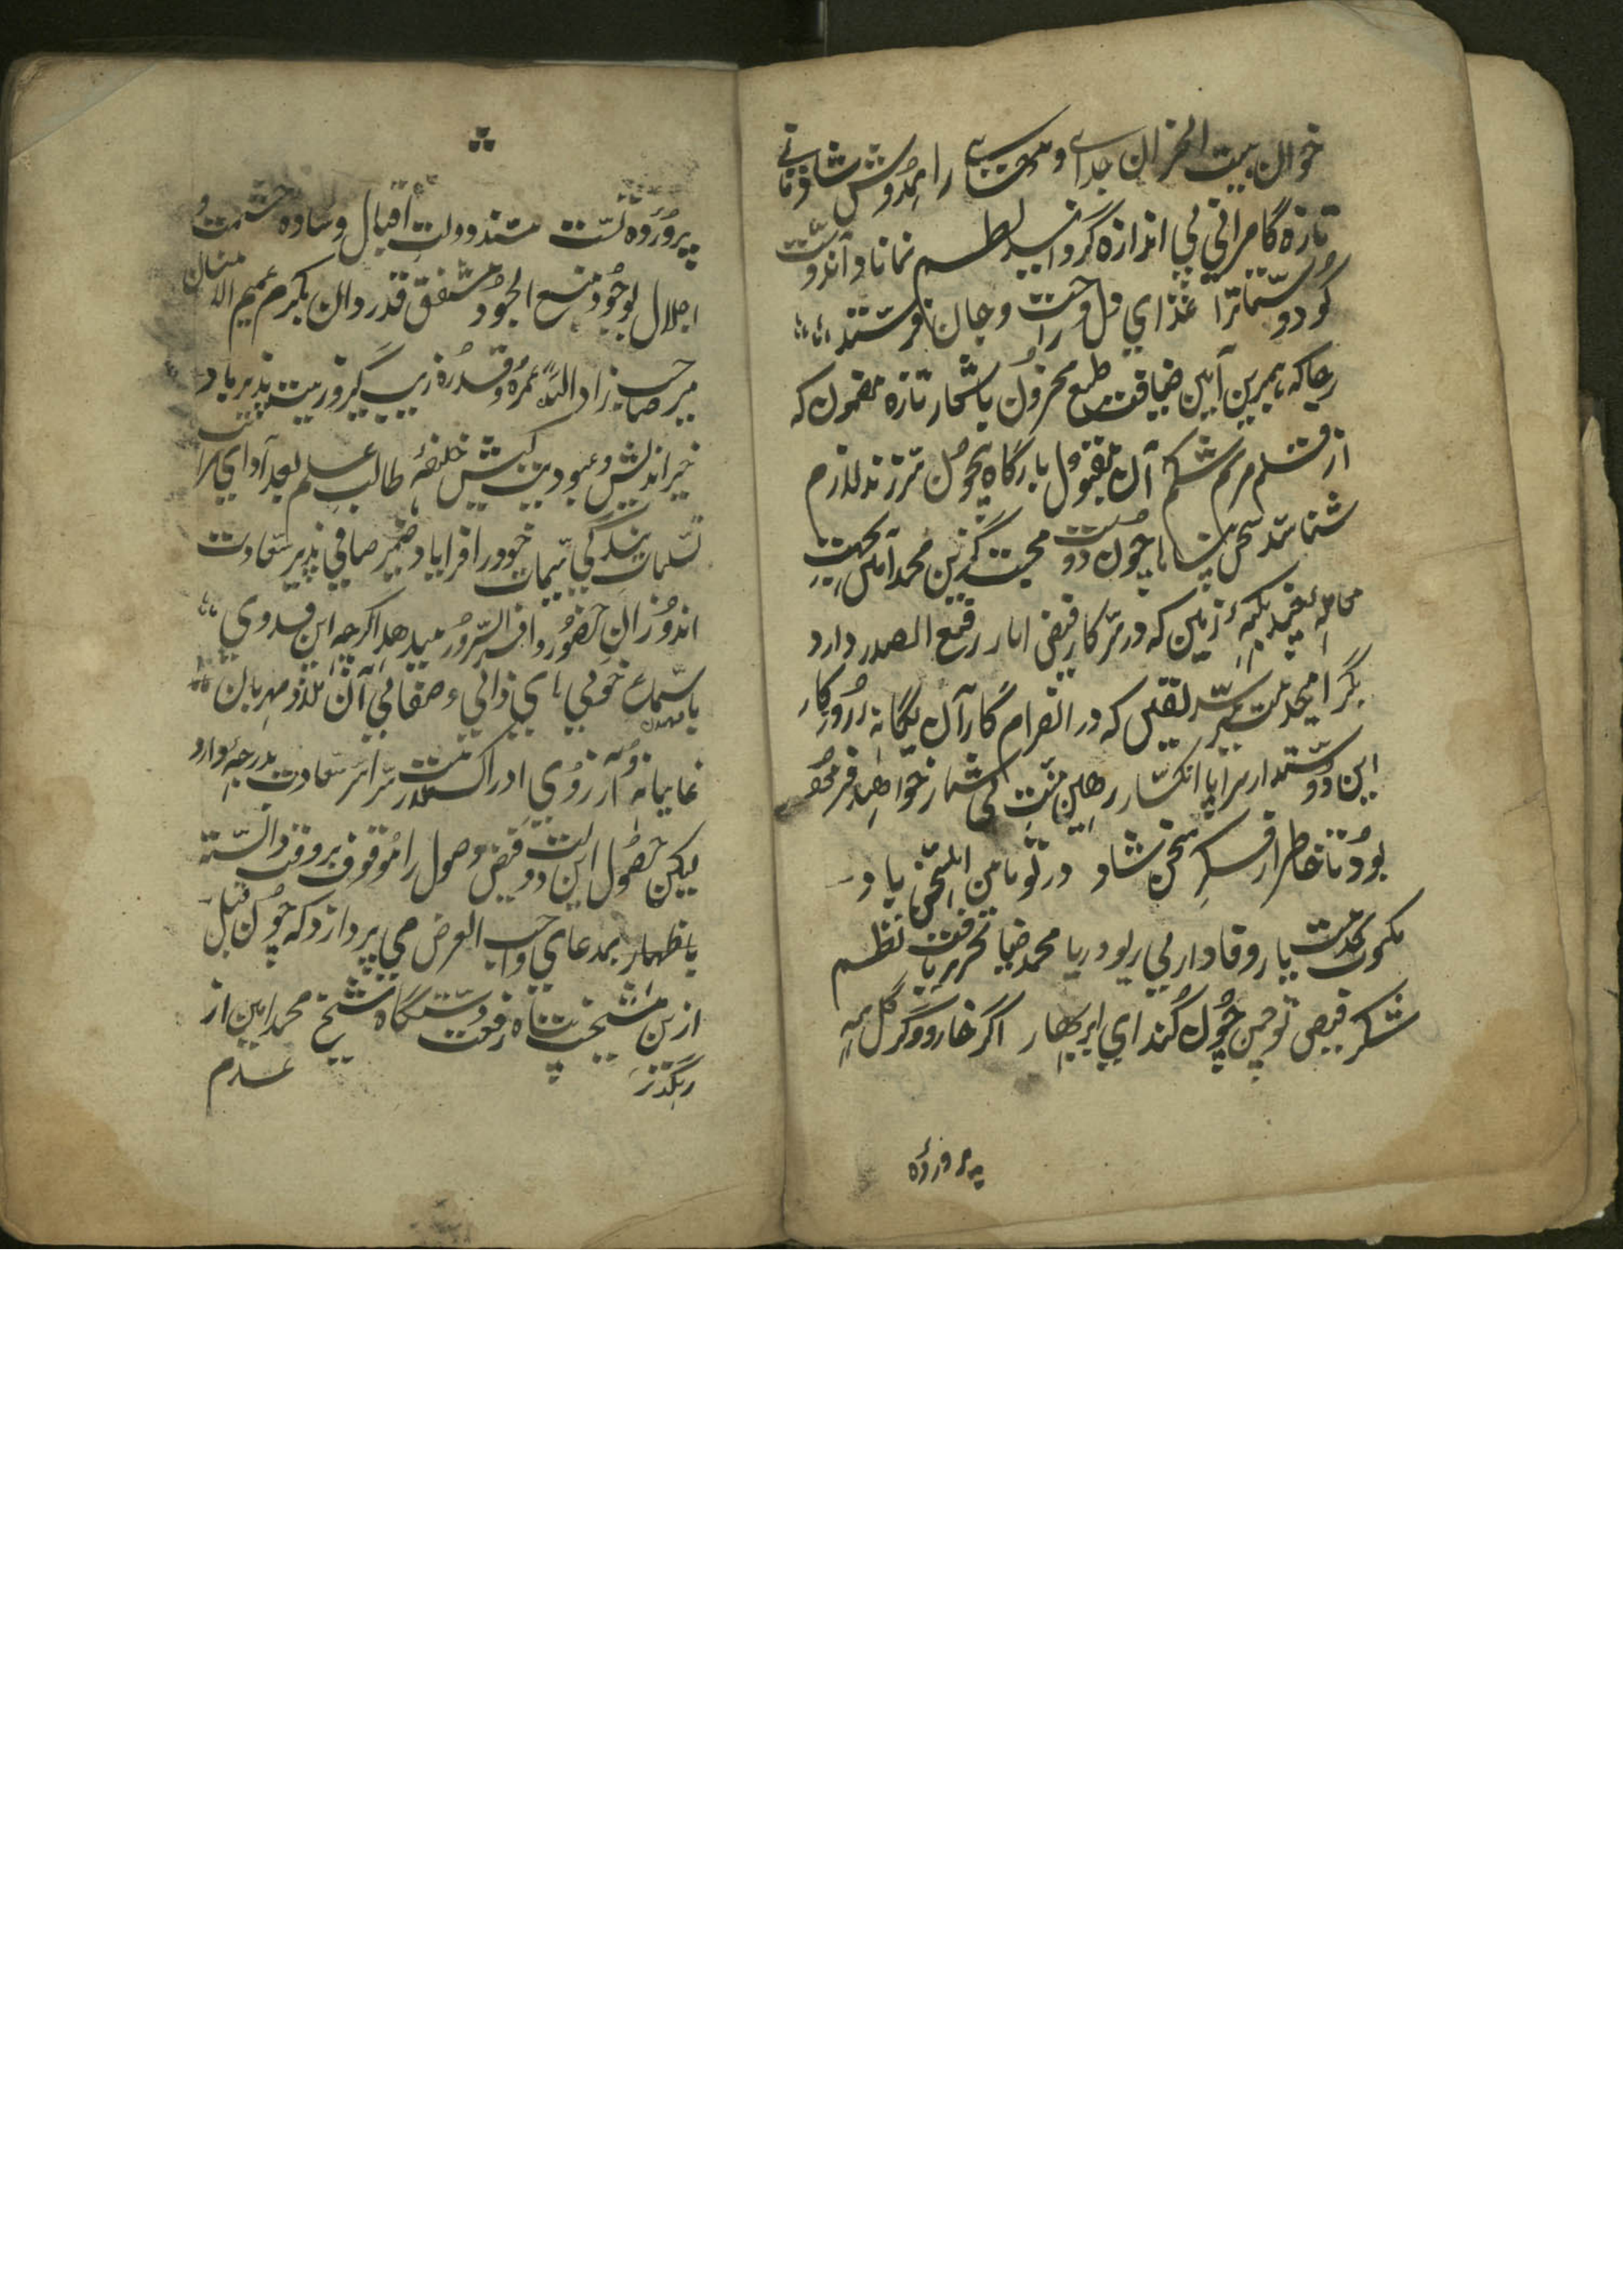 خوان بیت الحزان جدائے و را همدوش شادمانے
تازه کامرانی بی اندازه گردانید نظم نماناد آندوست
کو دوستانرا غذای دل و راحت جان فرستند
رجا که بهمین آیین ضیافت طبع محزون باشعار تازه مضمون که
از قلم مریم شکم آن مقبول بارگاه بیچون ترزند لازم
شناسند سخن چون دوست محبت گزین محمد بجهت
که در سرکار فیض اثار رفیع الصدر دارد
یقین که در انصرام کار آن یگانه روزگار
این دوستدار سراپا انکسار رهین منت بی شمار خواهد فرمود
بود تا خاطر از فکر سخن شاد در تو یا من المستحق باد
یار وفادار بی ریو و ریا محمد ضیا تحریر یافت نظم
شکر فیض تو چمن چون کند ای ابر بهار اگر خار و گر گل همه
پروردۀ
پروردۀ تست مسند دولت اقبال و ساده حشمت و
اجلال بوجود منبع الجود مشفق قدردان مکرم عمیم الامتنان
میر صاحب زاد الله عمره و قدره زیب گیر و زینت پذیر باد
خیراندیش و عبودیت کیش خلیفۀ طالب علم بعد آدای مراتب
تسلیمات بندگی سیمات خود را فرا یاد ضمیر صافی پذیر سعادت
اندوزان حضور وافر السرور میدهد اگرچه این فدوی
باستماع خوبی های ذاتی و صفاتی آن ملاذ مهربان
غایبانه آرزوی ادراک خدمت سراسر سعادت بدرجۀ دارد
لیکن حصول این دولت فیض وصول را موقوف بر وقت دانسته
باظهار مدعای واجب العرض می پردازد که چون قبل
ازین مشیخت پناه رفعت دستگاه شیخ محمد امین از
رهگذر عدم